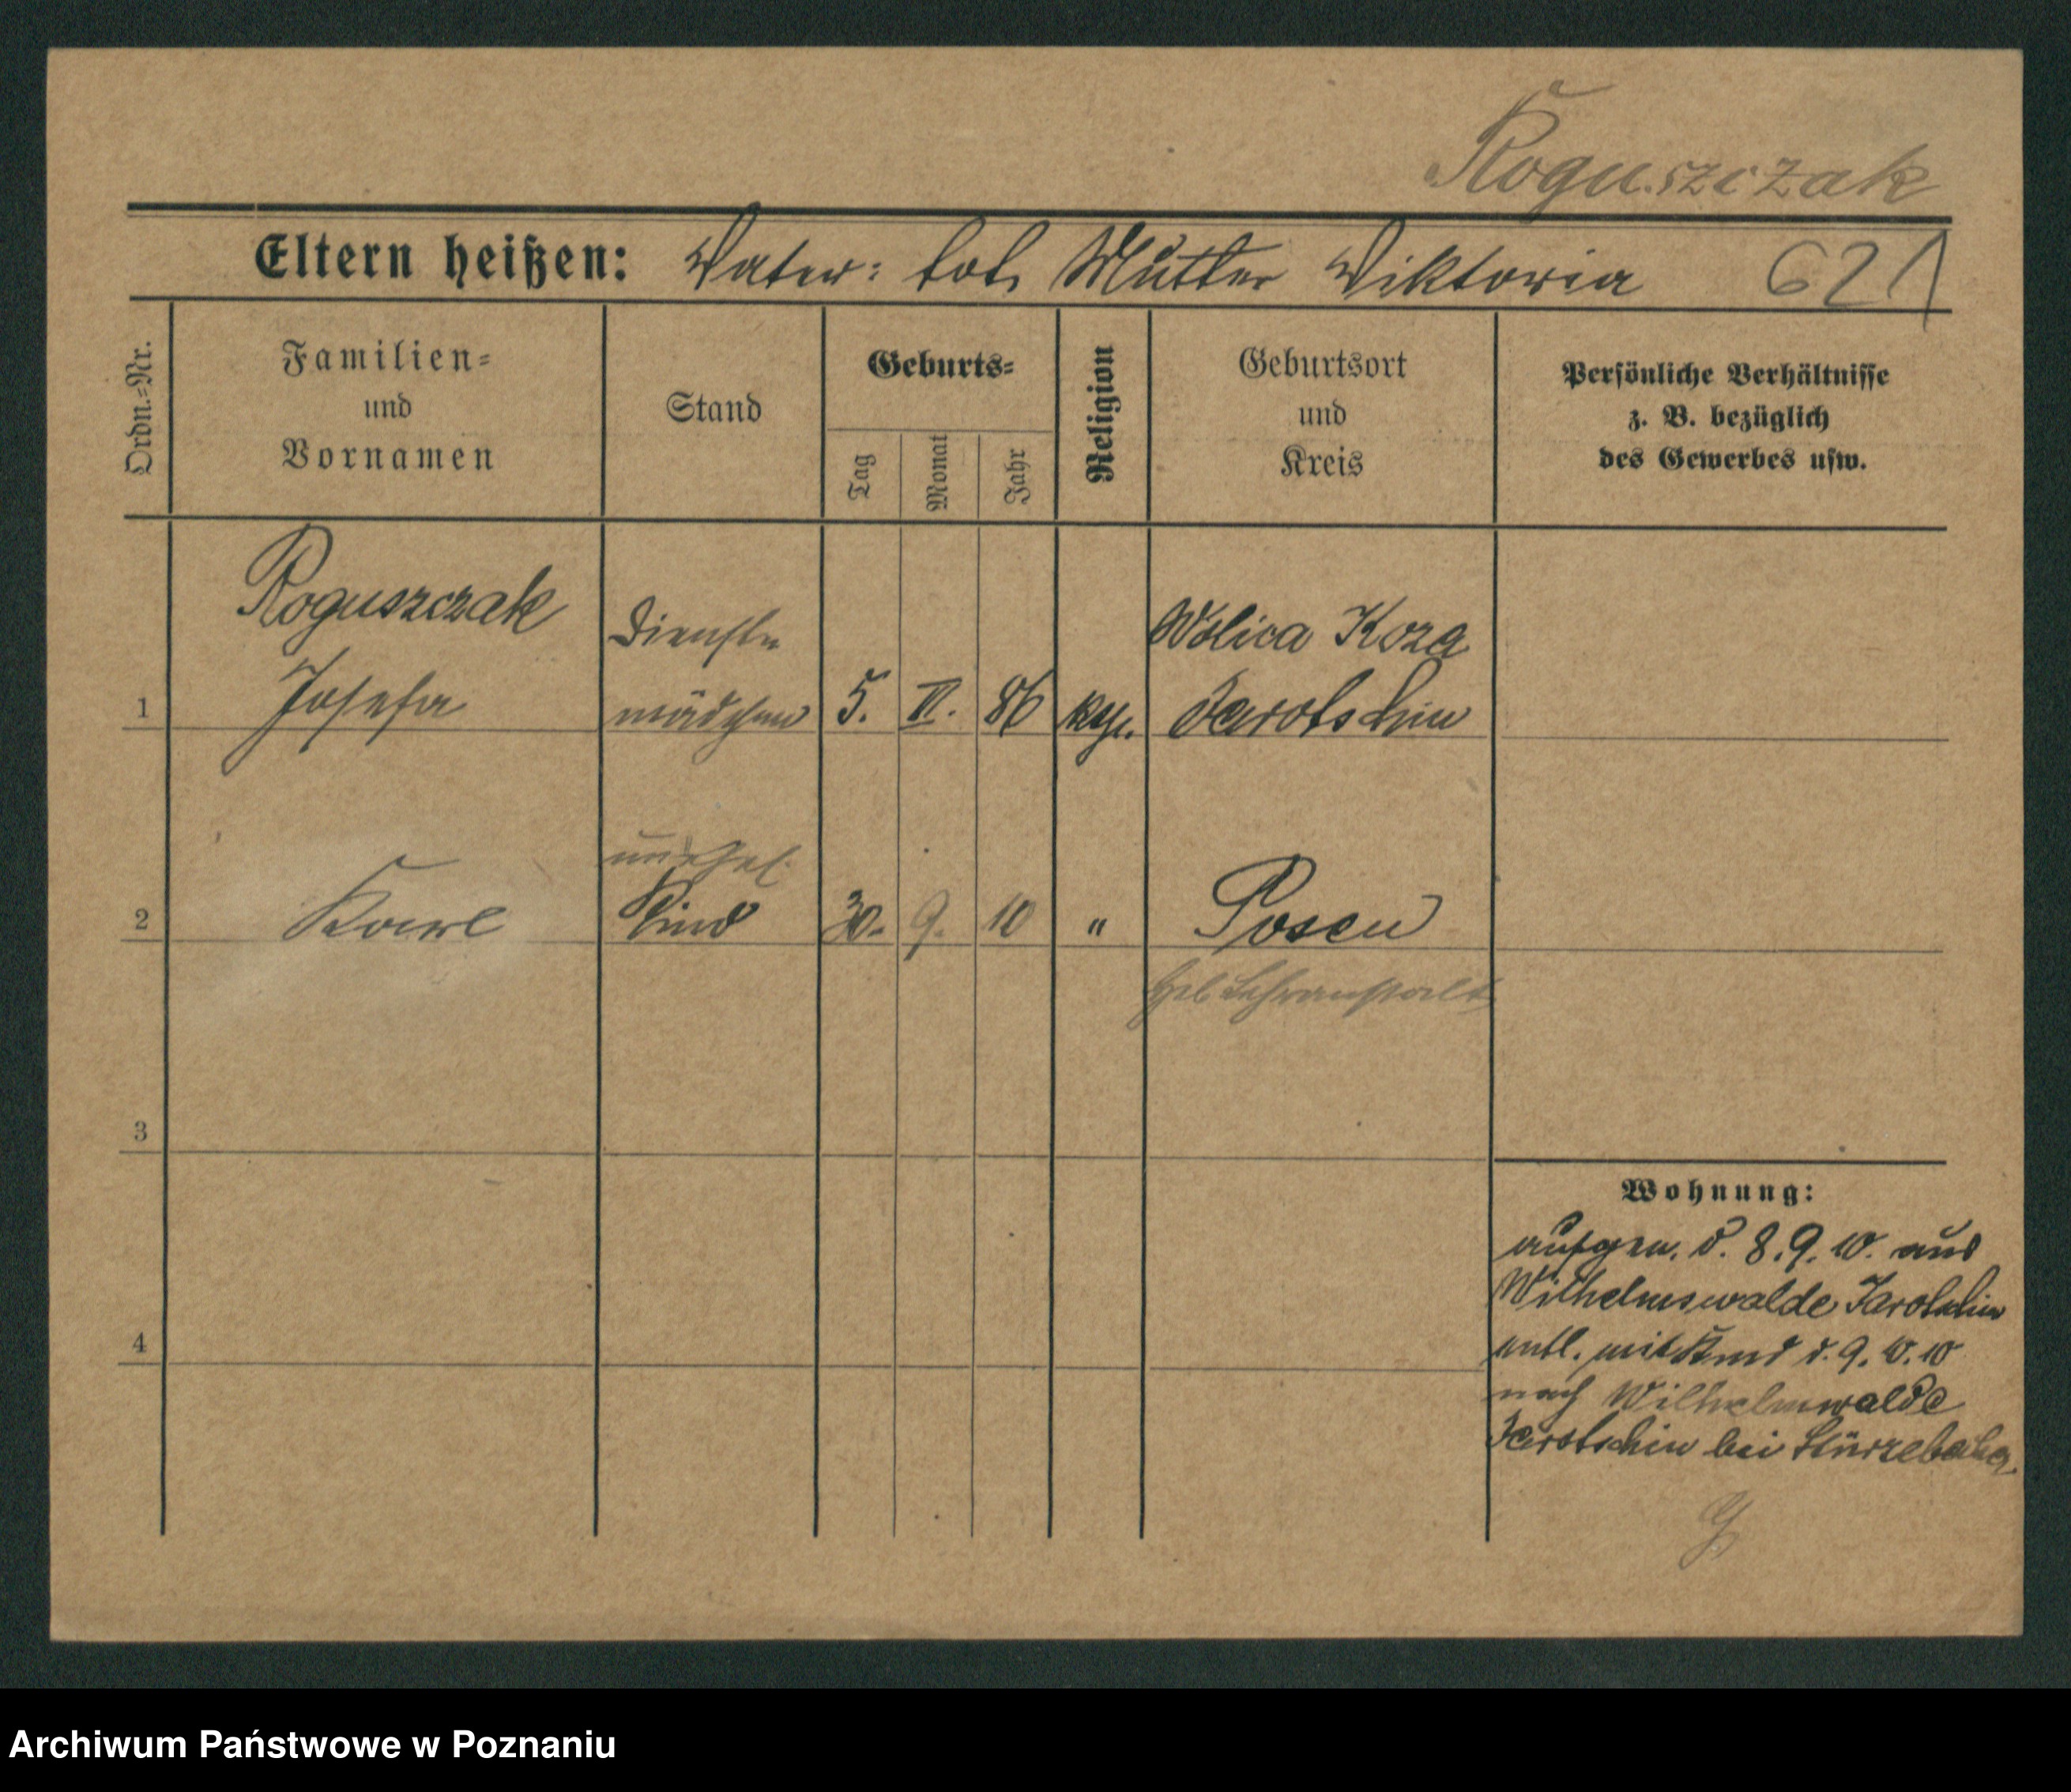 Roguszczak
Eltern heißen: Vater: tot, Mutter Viktoria 621
Ordn.-Nr.
Familien-
und
Vornamen
Stand
Geburts-
Tag
Monat
Jahr
Religion
Geburtsort
und
Kreis
Persönliche Verhältnisse
z. B. bezüglich
des Gewerbes usw.
Roguszczak
Dienst-
Wolica Koza
1 Josefa mädchen 5. II. 86 kath. Jarotschin
unehel.
2 Karl Kind 30. 9. 10 " Posen
Heb. Lehranstalt
3
Wohnung:
aufgen. d. 8.9.10. aus
Wilhelmswalde Jarotschin
4
entl. mit Kind d. 9.10.10
nach Wilhelmswalde
Jarotschin bei